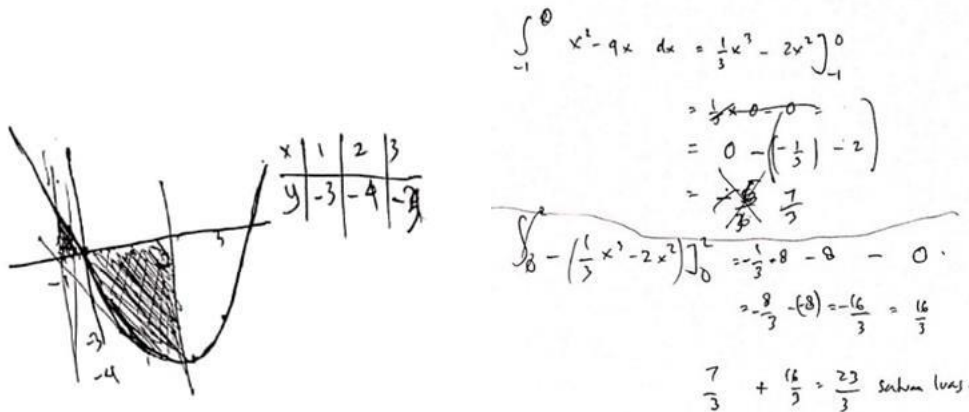 x | 1 | 2 | 3
y | -3 | -4 | -3
-1
3
-3
-4
∫₋₁⁰ x² - 4x dx = 1/3 x³ - 2x² ]₋₁⁰
= 0 - (-1/3) - 2)
= 7/3
∫₀² - (1/3 x³ - 2x²) ]₀² = -1/3 · 8 - 8 - 0.
= -8/3 - (-8) = -16/3 = 16/3
7/3 + 16/3 = 23/3 satuan luas.